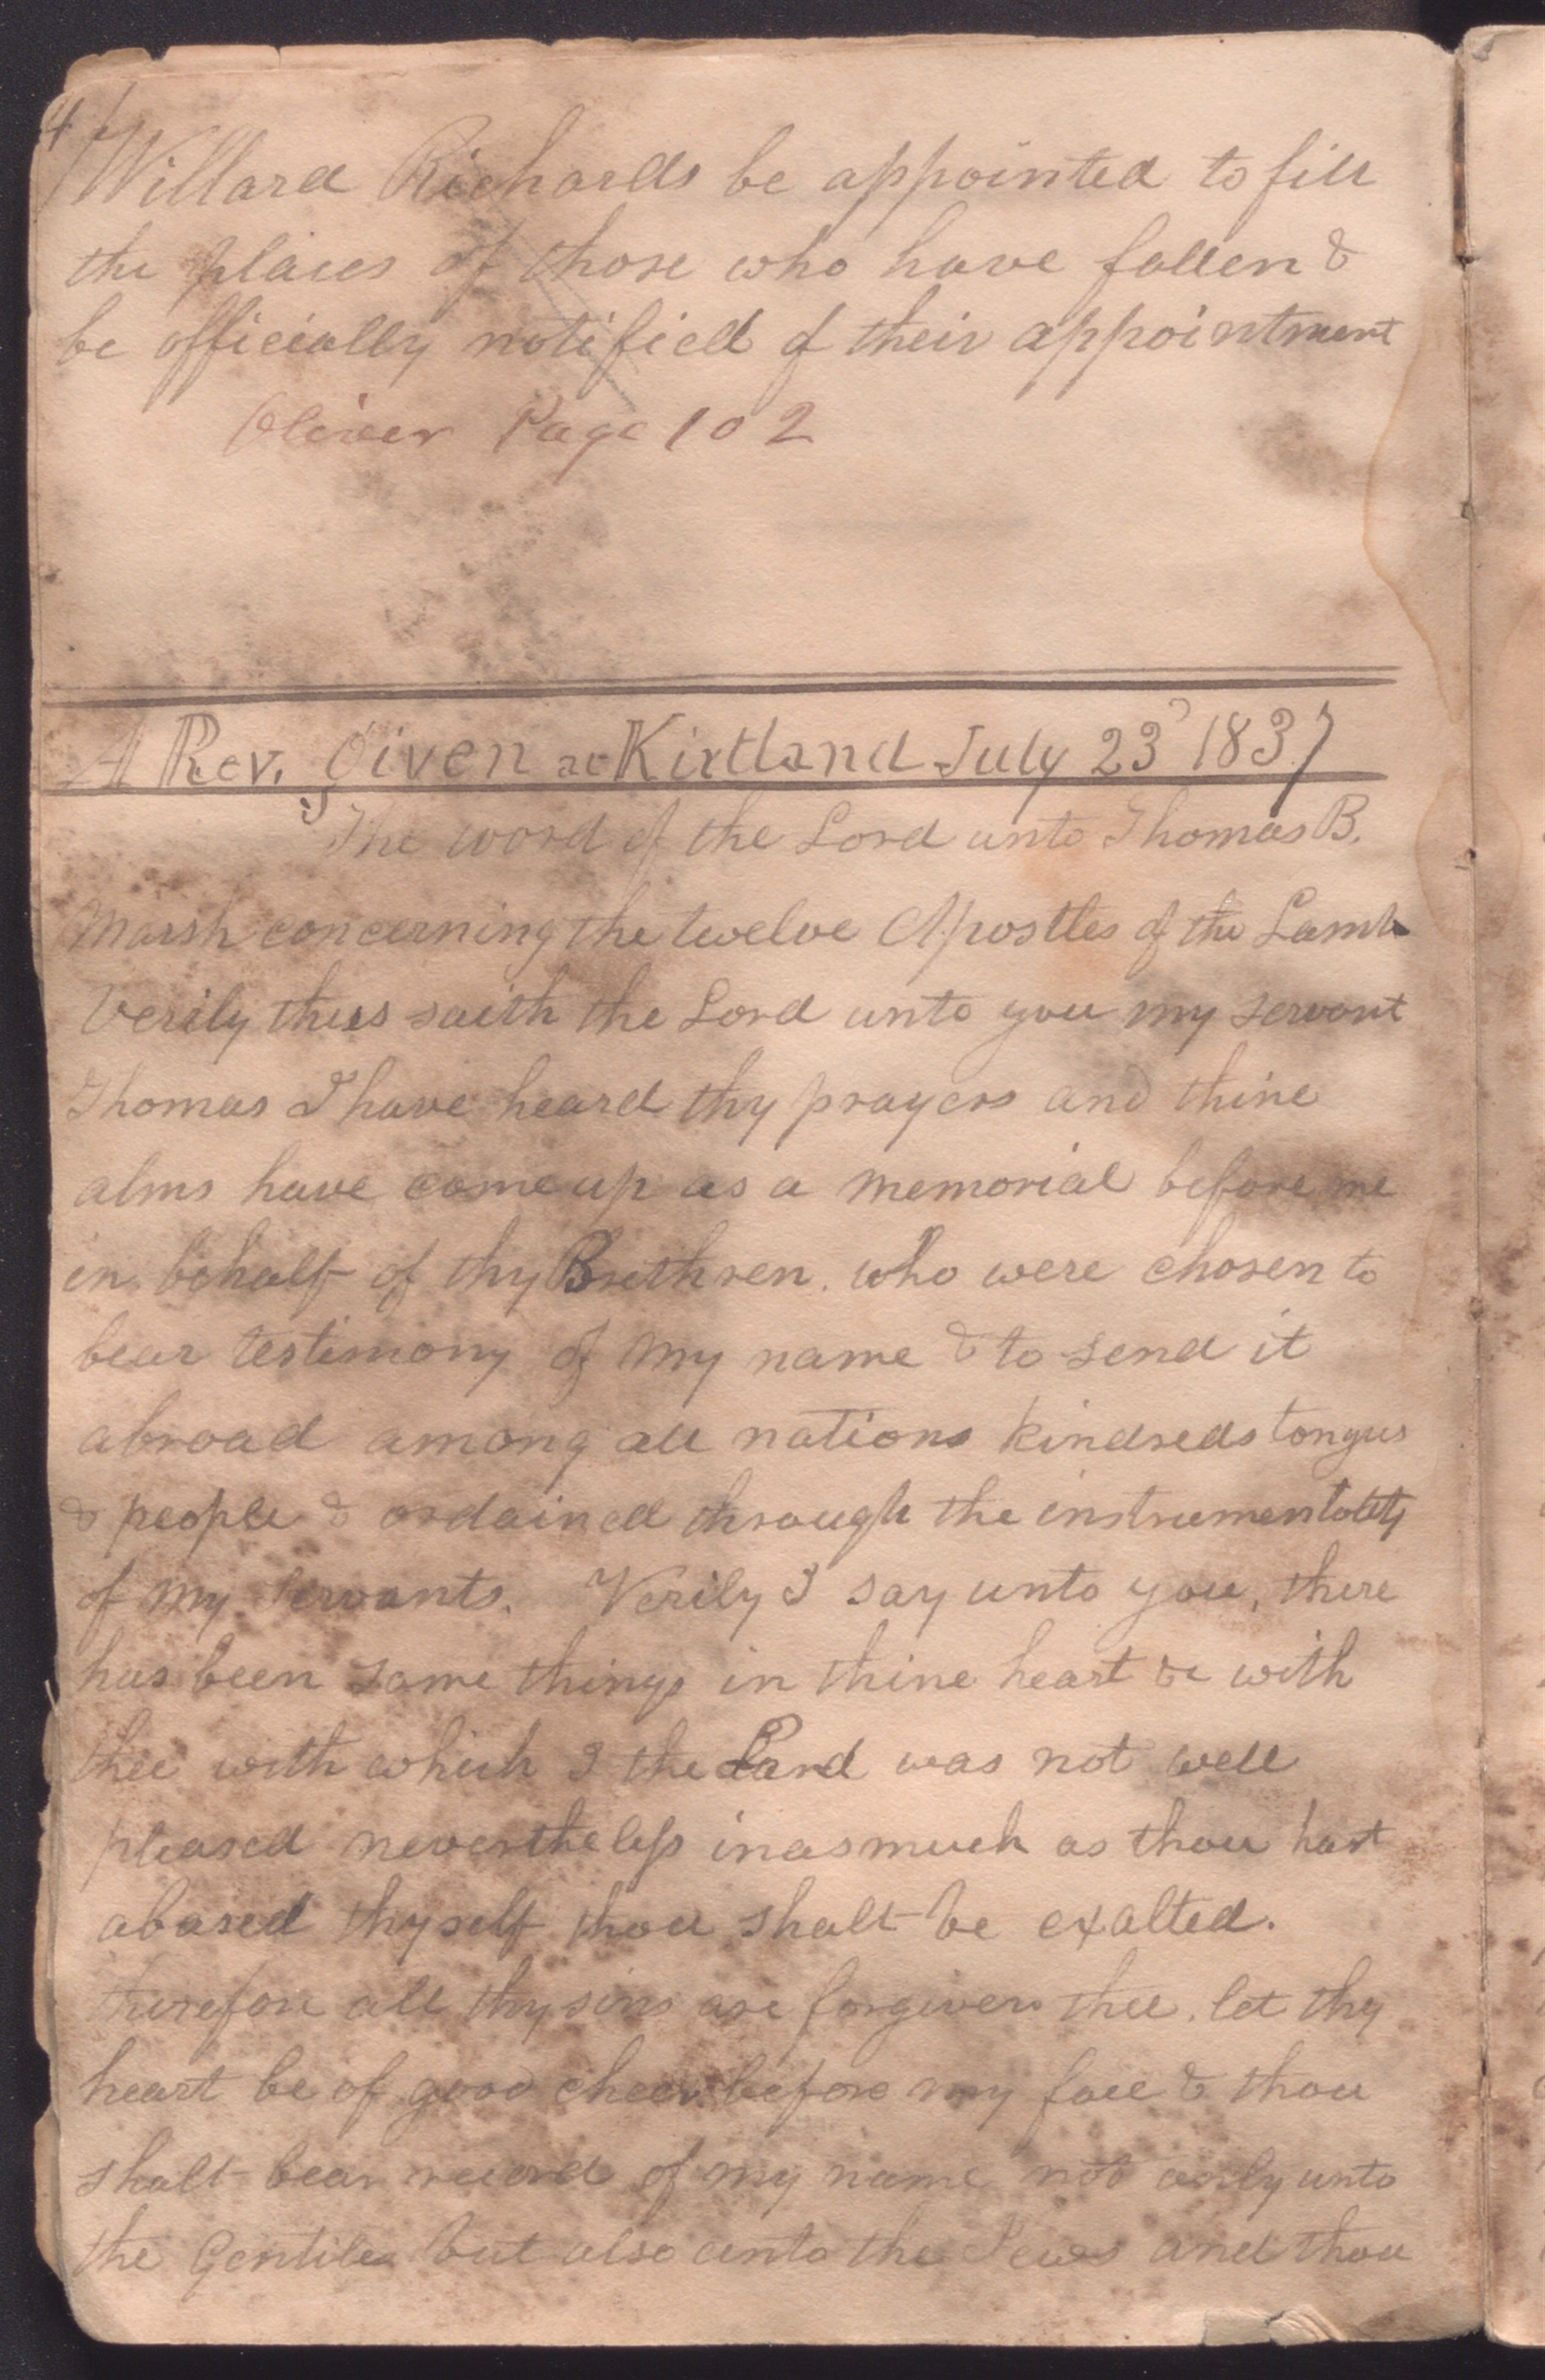 4
Willard Richards be appointed to fill
the places of those who have fallen &
be officially notified of their appointment
Oliver Page 102
A Rev. Given at Kirtland July 23 1837
The word of the Lord unto Thomas B.
Marsh concerning the twelve Apostles of the Lamb
Verily thus saith the Lord unto you my servant
Thomas I have heard thy prayers and thine
alms have come up as a memorial before me
in behalf of thy Brethren. who were chosen to
bear testimony of my name & to send it
abroad among all nations kindreds tongues
& people & ordained through the instrumentality
of my servants. Verily I say unto you, there
has been some things in thine heart & with
thee with which I the Lord was not well
pleased nevertheless inasmuch as thou hast
abased thyself thou shalt be exalted.
therefore all thy sins are forgiven thee. let thy
heart be of good cheer before my face & thou
shalt bear record of my name not only unto
the Gentiles but also unto the Jews and thou